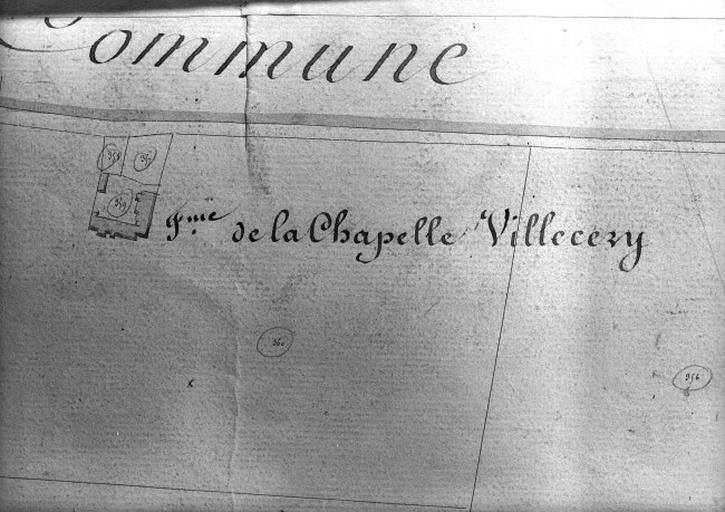 Commune
358
359
Fme de la Chapelle Villecezy
360
356